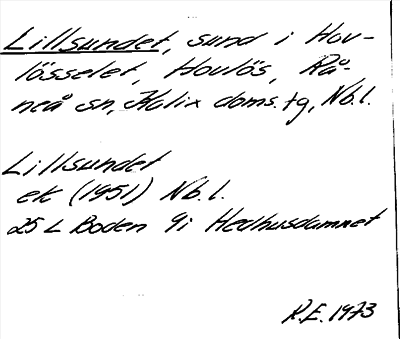 Lillsundet, sund i Hov-
lösselet, Hovlös, Rå-
neå sn, Kalix doms. tg, Nb.l.
Lillsundet
ek (1951) Nb.l.
25 L Boden 9i Hedhusdamnet
R.E. 1973